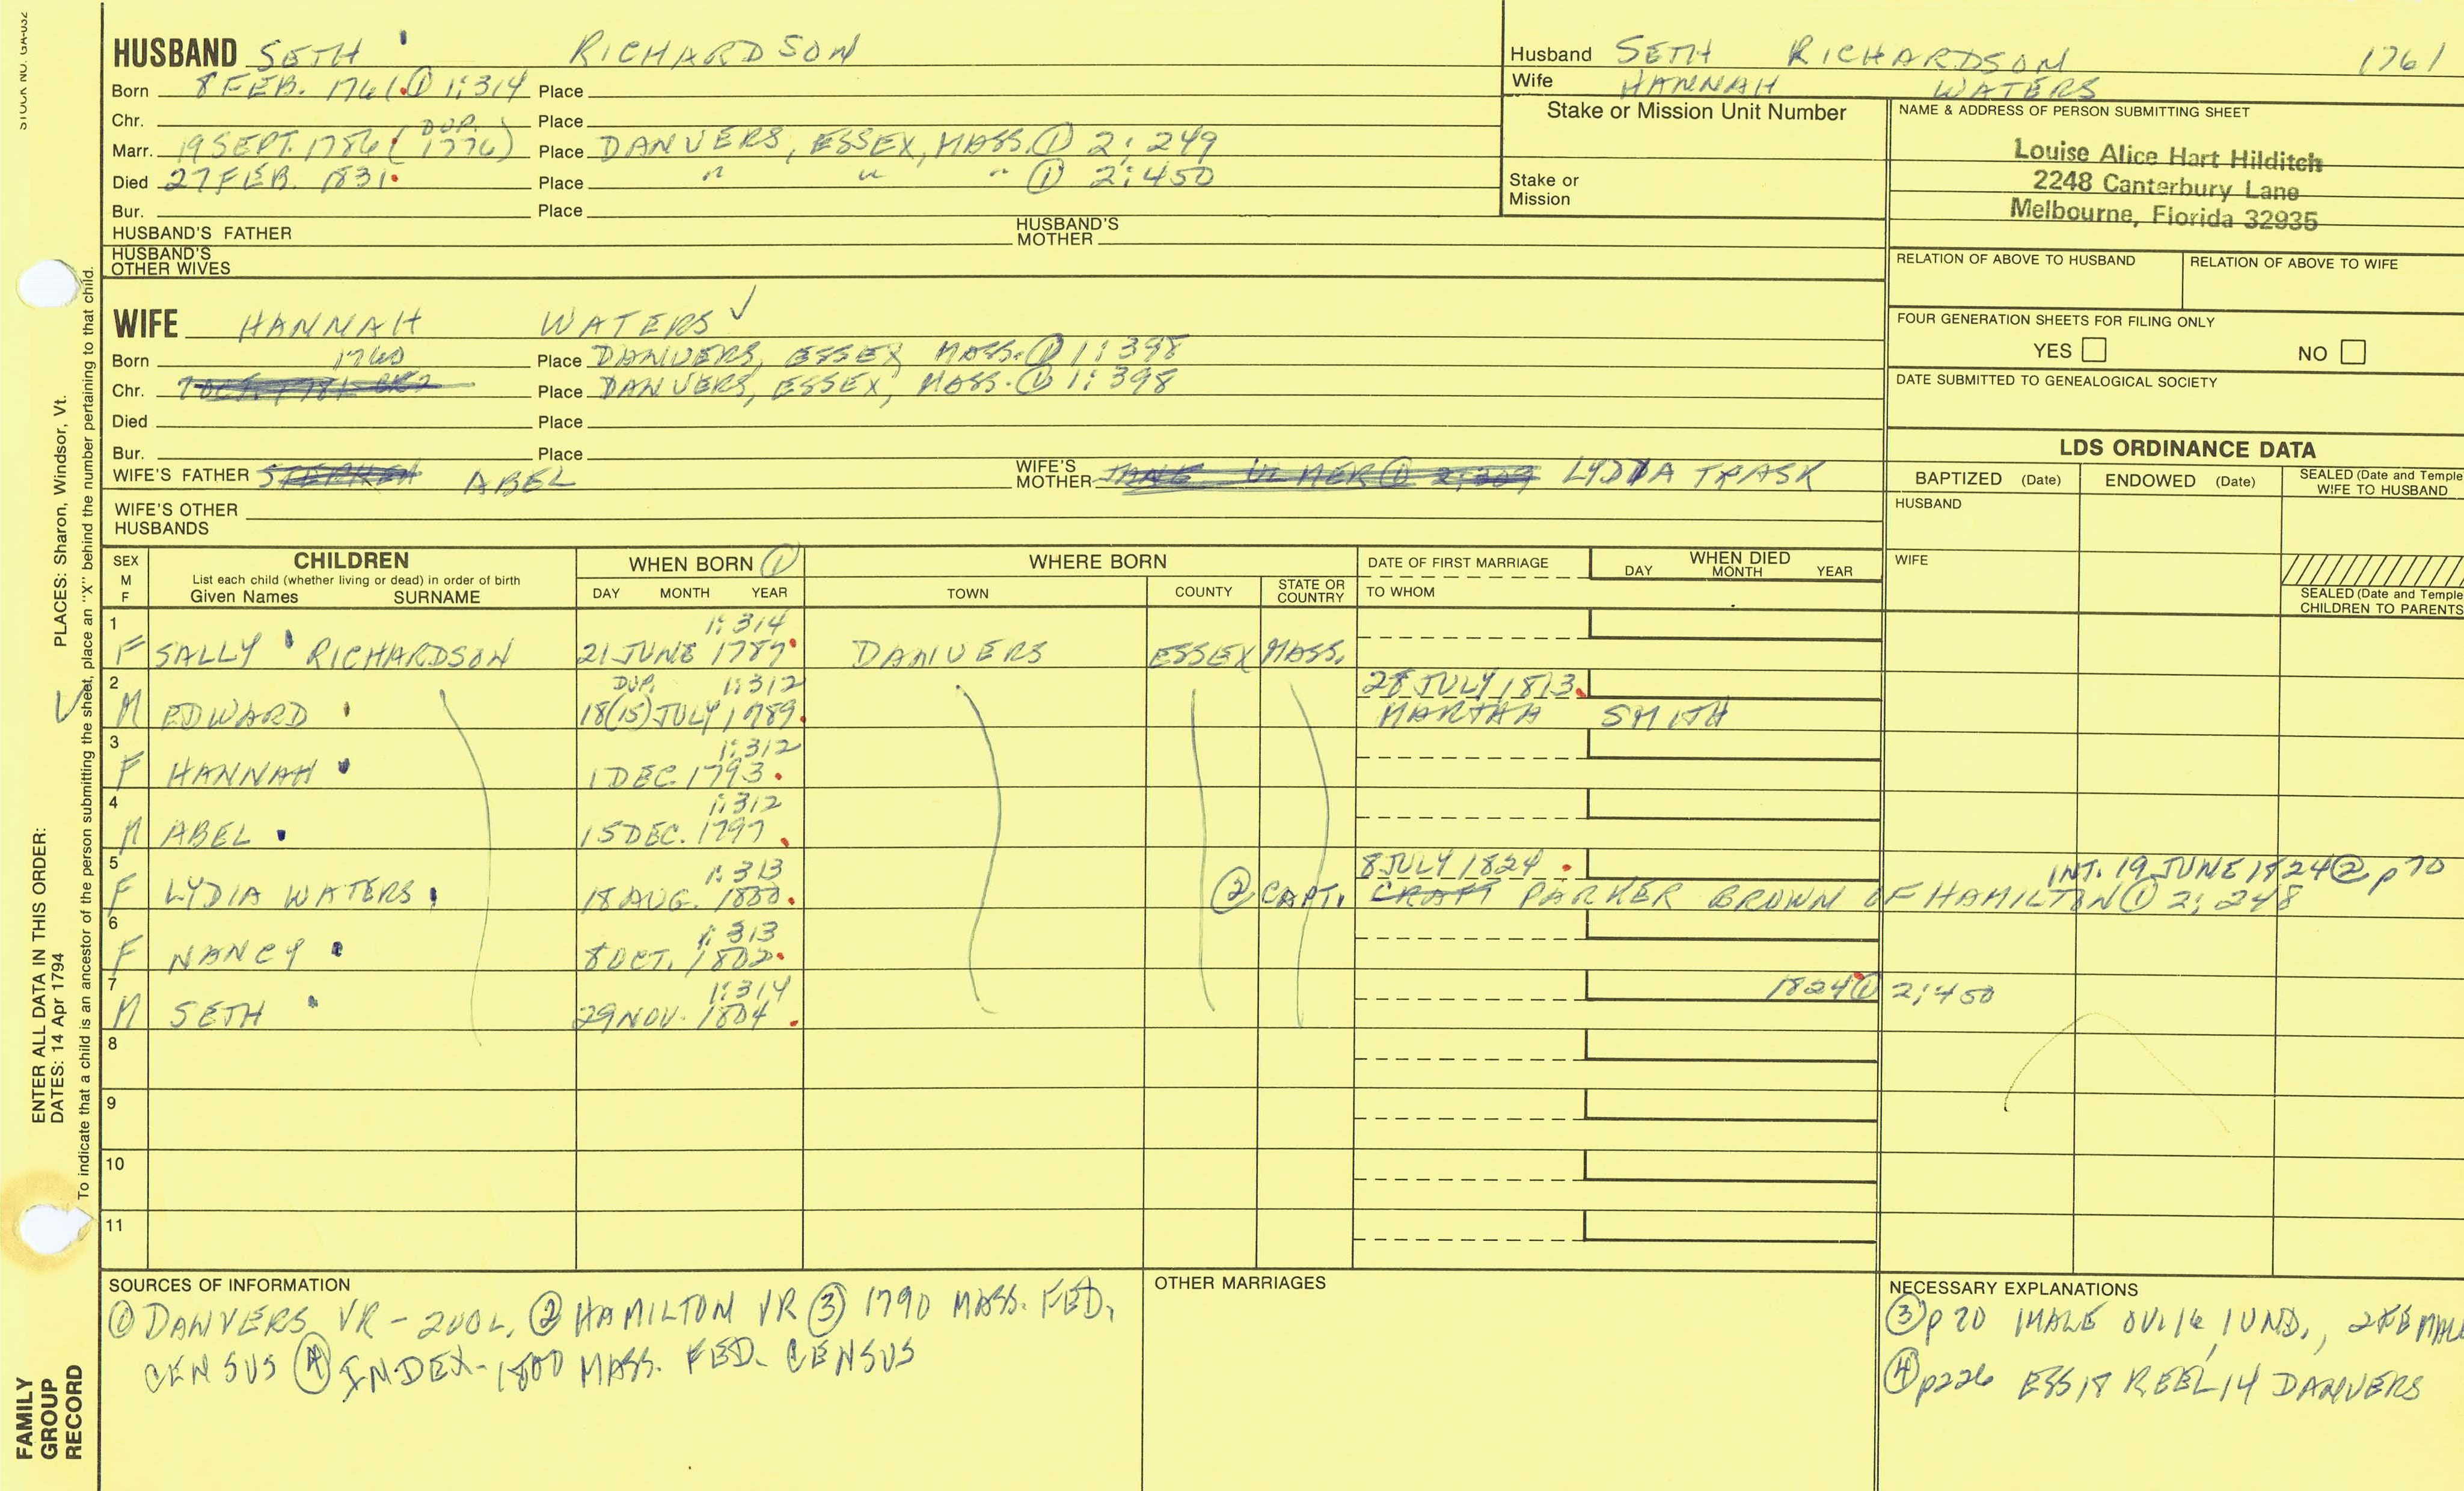 STOCK NO. GA-032
HUSBAND SETH RICHARDSON
Born 8 FEB. 1761 ① 1:314 Place
Chr. Place
Marr. 19 SEPT. 1786 (DUP. 1776) Place DANVERS, ESSEX, MASS. ① 2:249
Died 27 FEB. 1831 Place " " " ① 2:450
Bur. Place
HUSBAND'S FATHER HUSBAND'S MOTHER
HUSBAND'S OTHER WIVES
Husband SETH RICHARDSON 1761
Wife HANNAH WATERS
Stake or Mission Unit Number
Stake or Mission
NAME & ADDRESS OF PERSON SUBMITTING SHEET
Louise Alice Hart Hilditch
2248 Canterbury Lane
Melbourne, Florida 32935
RELATION OF ABOVE TO HUSBAND RELATION OF ABOVE TO WIFE
FOUR GENERATION SHEETS FOR FILING ONLY
YES NO
DATE SUBMITTED TO GENEALOGICAL SOCIETY
WIFE HANNAH WATERS ✓
Born 1760 Place DANVERS, ESSEX MASS. ① 1:398
Chr. Place DANVERS, ESSEX, MASS. ① 1:398
Died Place
Bur. Place
WIFE'S FATHER STEPHEN ABEL WIFE'S MOTHER LYDIA TRASK
WIFE'S OTHER HUSBANDS
LDS ORDINANCE DATA
BAPTIZED (Date) ENDOWED (Date) SEALED (Date and Temple
WIFE TO HUSBAND
HUSBAND
WIFE
SEALED (Date and Temple
CHILDREN TO PARENTS
SEX M F CHILDREN WHEN BORN ① WHERE BORN DATE OF FIRST MARRIAGE WHEN DIED
List each child (whether living or dead) in order of birth
Given Names SURNAME DAY MONTH YEAR TOWN COUNTY STATE OR COUNTRY TO WHOM DAY MONTH YEAR
1 1:314
F SALLY RICHARDSON 21 JUNE 1787 DANVERS ESSEX MASS.
2 DUP. 1:312 28 JULY 1813
✓ M EDWARD 18(15) JULY 1789 MARTHA SMITH
3 1:312
F HANNAH 1 DEC. 1793
4 1:312
M ABEL 15 DEC. 1797
5 1:313 8 JULY 1824 INT. 19 JUNE 1824 ② p70
F LYDIA WATERS 18 AUG. 1800 ② CAPT. CRAFT PARKER BROWN OF HAMILTON ① 2:248
6 1:313
F NANCY 8 OCT. 1802
7 1:314 1824 ① 2:450
M SETH 29 NOV. 1804
8
9
10
11
SOURCES OF INFORMATION
① DANVERS VR - 2VOL. ② HAMILTON VR ③ 1790 MASS. FED.
CENSUS ④ INDEX - 1800 MASS. FED. CENSUS
OTHER MARRIAGES
NECESSARY EXPLANATIONS
③ p20 1MALE OV.16, 1 UND., 2FEMAL
④ p226 ESS 18 REEL 14 DANVERS
FAMILY GROUP RECORD
ENTER ALL DATA IN THIS ORDER:
DATES: 14 Apr 1794 PLACES: Sharon, Windsor, Vt.
To indicate that a child is an ancestor of the person submitting the sheet, place an "X" behind the number pertaining to that child.